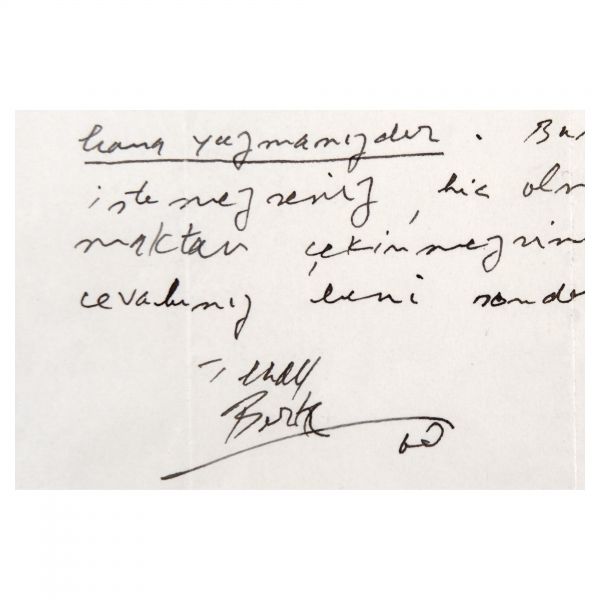 bana yazmanızdır. Bu
istemezseniz, hiç olm
maktan çekinmezsin
cevabınız beni sonde
İlhan
Berk